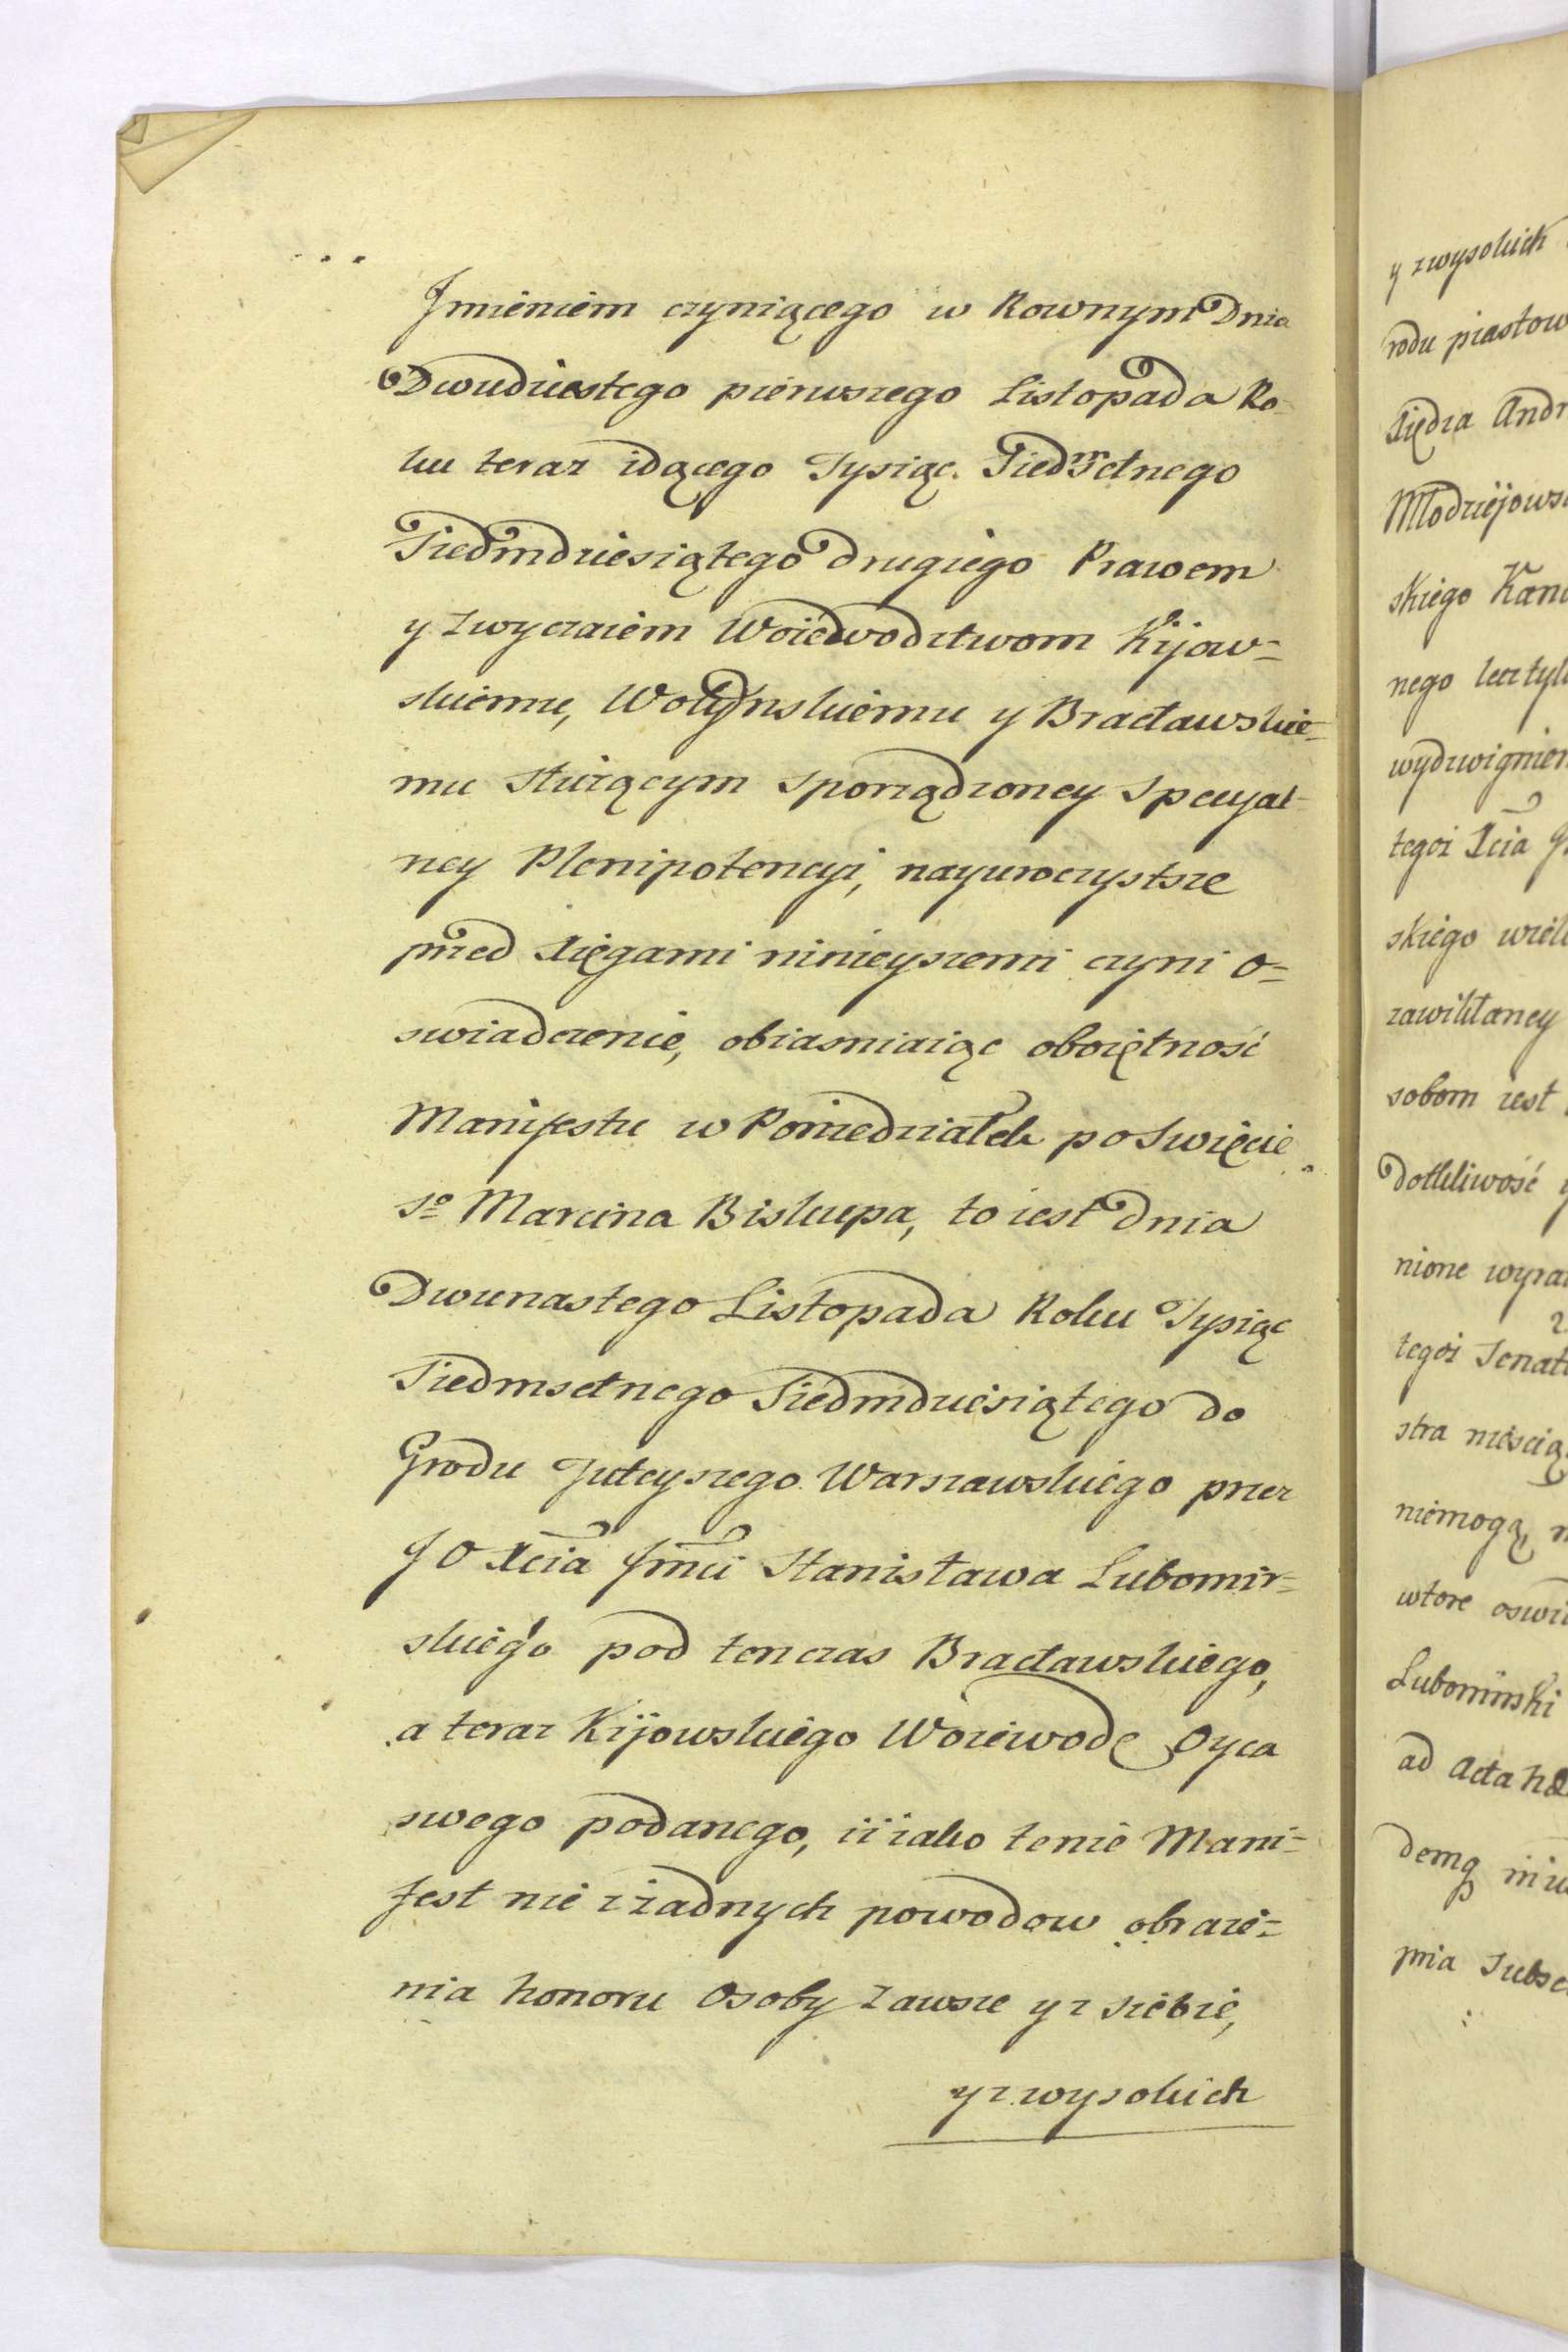 Jmieniem czyniącego w Rownym Dnia
Dwudziestego pierwszego Listopada Ro-
ku teraz idącego Tysiąc Siedmsetnego
Siedmdziesiątego drugiego Prawem
y Zwyczaiem Woiewodztwom Kijow=
skiemu, Wołynskiemu y Bracławskie=
mu służącym sporządzoney specyal-
ney Plenipotencyi, nayuroczystsze
przed Xięgami ninieyszemi czyni o=
swiadczenie, obiasniaiąc oboiętność
Manifestu w Poniedziałek po Swięcie
So Marcina Biskupa, to iest dnia
Dwunastego Listopada Roku Tysiąc
Siedmsetnego Siedmdziesiątego do
Grodu Juteyszego Warszawskiego przez
J O Xcia Jmci Stanisława Lubomir=
skiego pod tenczas Bracławskiego,
a teraz Kijowskiego Woiewodę Oyca
swego podanego, iż iako tenże Mani=
fest nie z żadnych powodow obraże=
nia honoru Osoby Zawsze y z siebie,
y z wysokich
y z wysokich
rodu piastow
Xiędza Andr
Młodziejows
skiego Kanc
nego lecz tylk
wydzwignien
tegoż Xcia
skiego wiel
zawikłaney
sobom iest
dotkliwość
nione wyraz
tegoż Senat
stra nieścią
niemogą,
wtore oswia
Lubomirski
ad Acta hæ
demq
pnia Subsc